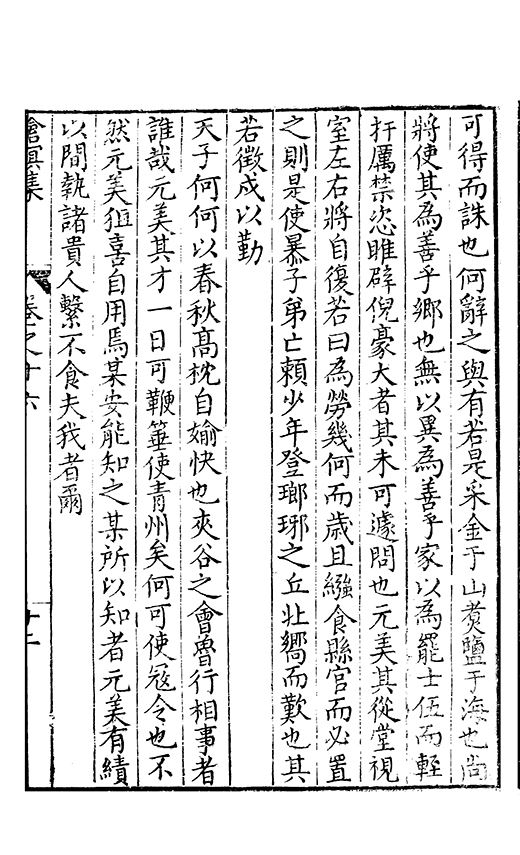 可得而誅也何辭之與有若是采金于山煑鹽于海也尚
將使其為善乎鄉也無以異為善乎家以為罷士伍而輕
扞厲禁恣睢辟倪豪大者其未可遽問也元美其從堂視
室左右將自復若曰為勞幾何而歲且繦食縣官而必置
之則是使暴子弟亡賴少年登瑯琊之丘壯嚮而歎也其
若徵戍以勤
天子何何以春秋高枕自媮快也夾谷之會魯行相事者
誰哉元美其才一日可鞭箠使青州矣何可使寇令也不
然元美狙喜自用焉某安能知之某所以知者元美有績
以間執諸貴人繫不食夫我者爾
滄溟集
卷之十六
十二